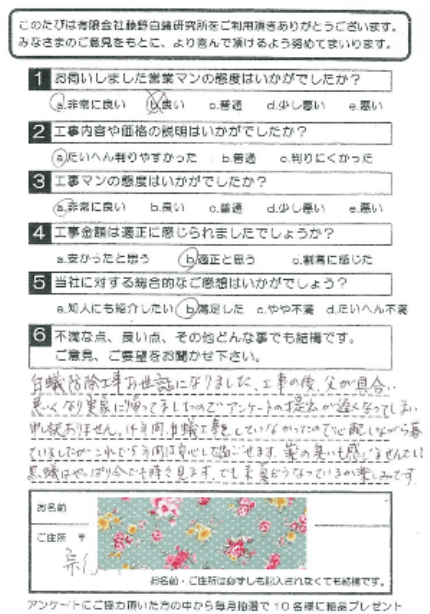 このたびは有限会社藤野白蟻研究所をご利用頂きありがとうございます。
みなさまのご意見をもとに、より喜んで頂けるよう努めてまいります。
1 お伺いしました営業マンの態度はいかがでしたか？
a.非常に良い b.良い c.普通 d.少し悪い e.悪い
2 工事内容や価格の説明はいかがでしたか？
a.たいへん判りやすかった b.普通 c.判りにくかった
3 工事マンの態度はいかがでしたか？
a.非常に良い b.良い c.普通 d.少し悪い e.悪い
4 工事金額は適正に感じられましたでしょうか？
a.安かったと思う b.適正と思う c.割高に感じた
5 当社に対する総合的なご感想はいかがでしょう？
a.知人にも紹介したい b.満足した c.やや不満 d.たいへん不満
6 不満な点、良い点、その他どんな事でも結構です。
ご意見、ご要望をお聞かせ下さい。
白蟻防除工事お世話になりました、工事の後、父が具合
悪くなり実家に帰ってましたのでアンケートの提出が遅くなってしまい
申し訳ありません。14年間、白蟻工事をしていなかったので心配しながら暮
ていましたがこれで5年間は安心して過ごせます。薬の臭いも感じませんでした
黒蟻はやっぱり今でも時々見ます、でも来夏どうなっているか楽しみです。
お名前
ご住所 〒
お名前・ご住所は必ずしも記入されなくても結構です。
アンケートにご協力頂いた方の中から毎月抽選で10名様に粗品プレゼント